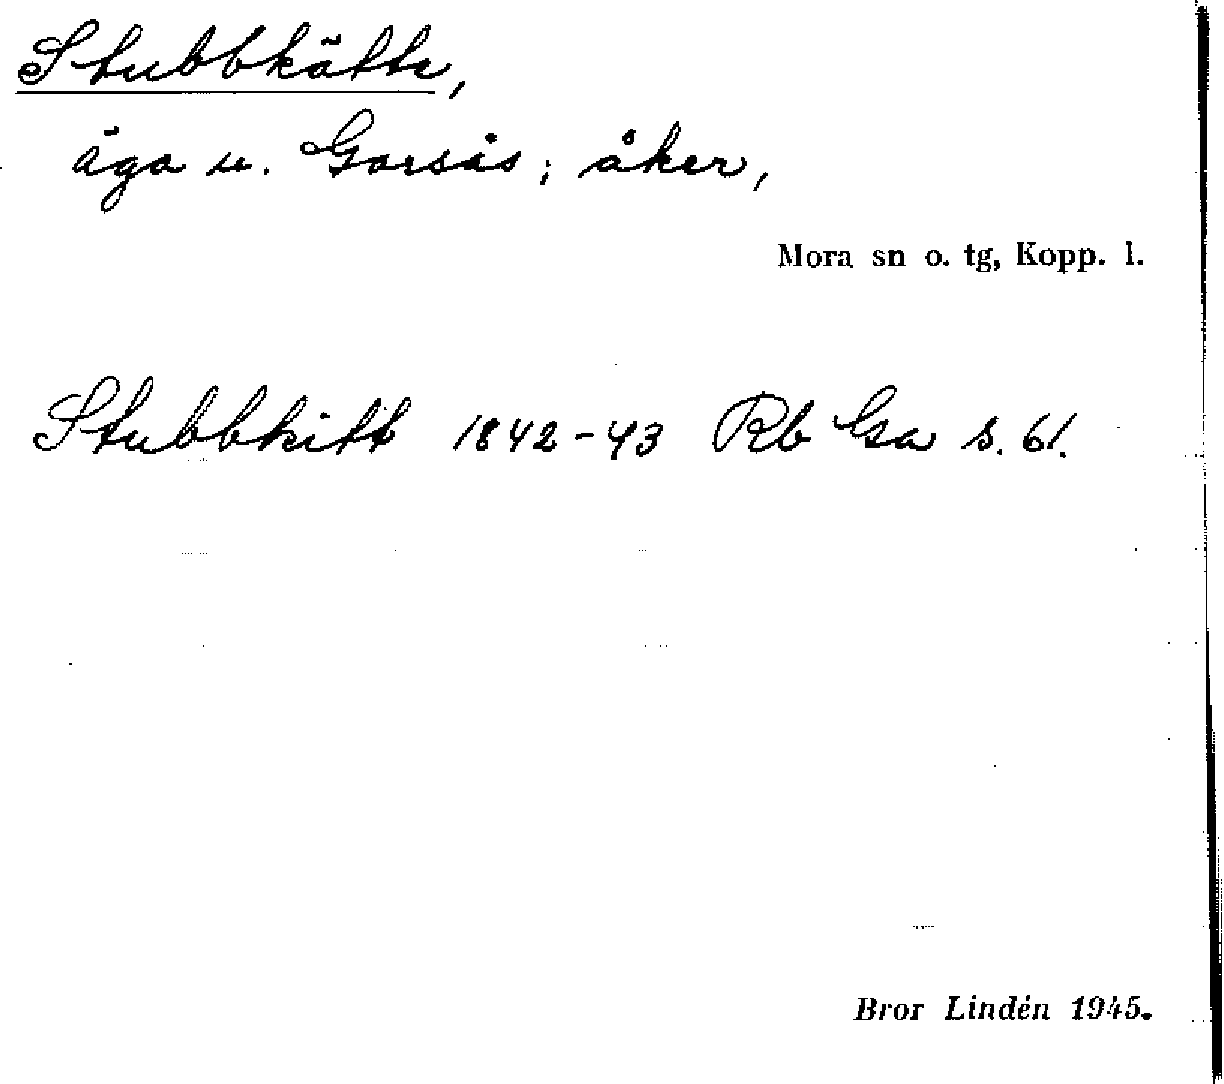 Stubbkätte,
äga u. Gorsås; åker,
Mora sn o. tg, Kopp. l.
Stubbkitt 1842-43 Rb Gsa s. 61.
Bror Lindén 1945.